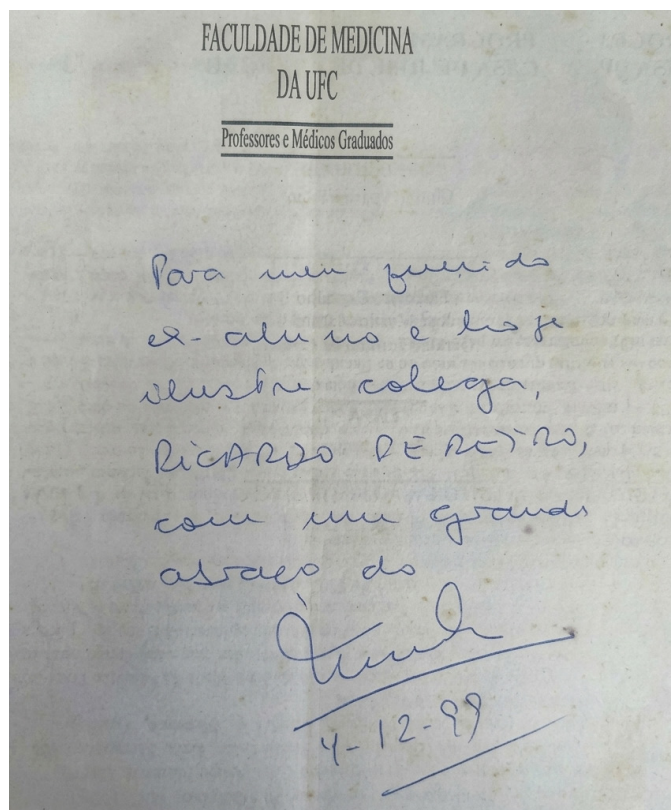 FACULDADE DE MEDICINA
DA UFC
Professores e Médicos Graduados
Para meu querido
ex-aluno e hoje
ilustre colega,
RICARDO PEREIRO,
com um grande
abraço do
4-12-99